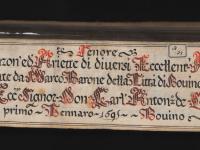 Tenore
zon' ed Ariette di diversi Eccellent.
te da Marco Barone della Città di Bovino
Ecc. Signor Don Carl' Anton. de
primo Gennaro 1695 Bovino